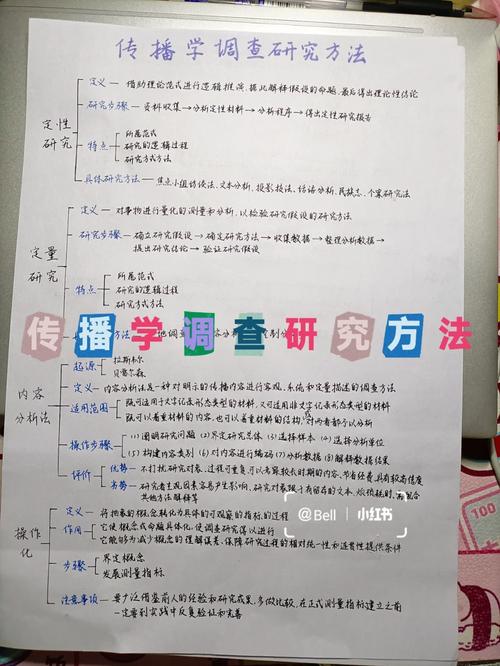 传播学调查研究方法
定性研究
定义 — 借助理论范式进行逻辑推演,据此解释假设的命题,最后得出理论性结论
研究步骤 — 资料收集→分析定性材料→分析程序→得出定性研究报告
特点
所属范式
研究的逻辑过程
研究方式方法
具体研究方法 — 焦点小组访谈法、文本分析、投影技法、话语分析、民族志、个案研究法
定量研究
定义 — 对事物进行量化的测量和分析,以检验研究假设的研究方法
研究步骤 — 确立研究假设→确定研究方法→收集数据→整理分析数据→
提出研究结论→验证研究假设
特点
所属范式
研究的逻辑过程
研究方式方法
方法
传播学调查研究方法
内容分析法
起源
拉斯韦尔
贝雷尔森
定义 — 内容分析法是一种对明示的传播内容进行客观、系统和定量描述的调查方法
适用范围
既可适用于文字记录形态类型的材料,又可适用非文字记录形态类型的材料
既可以着重材料的内容,也可以着重材料的结构,对两者都予以分析
操作步骤
(1)阐明研究问题 (2)界定研究总体 (3)选择样本 (4)选择分析单位
(5)构建内容类别 (6)对内容进行编码 (7)分析数据 (8)解释数据结果
评价
优势 — 不打扰研究对象、过程可重复、可以考察较长时期的内容、节省经费、具有较高信度
劣势 — 研究者主观因素容易产生影响、研究对象限于有留存的文本、烦琐耗时、需配合
其他方法解释等
@Bell 小红书
操作化
定义 — 将抽象的概念转化为具体的可观察的指标的过程
作用
它使概念或命题具体化,使调查研究得以进行
它能够为减少概念的理解误差、保障研究过程的相对统一性和连贯性提供条件
步骤
界定概念
发展测量指标
注意事项 — 要广泛借鉴前人的经验和研究成果,多做比较,在正式测量指标建立之前
一定要到实践中反复验证和完善